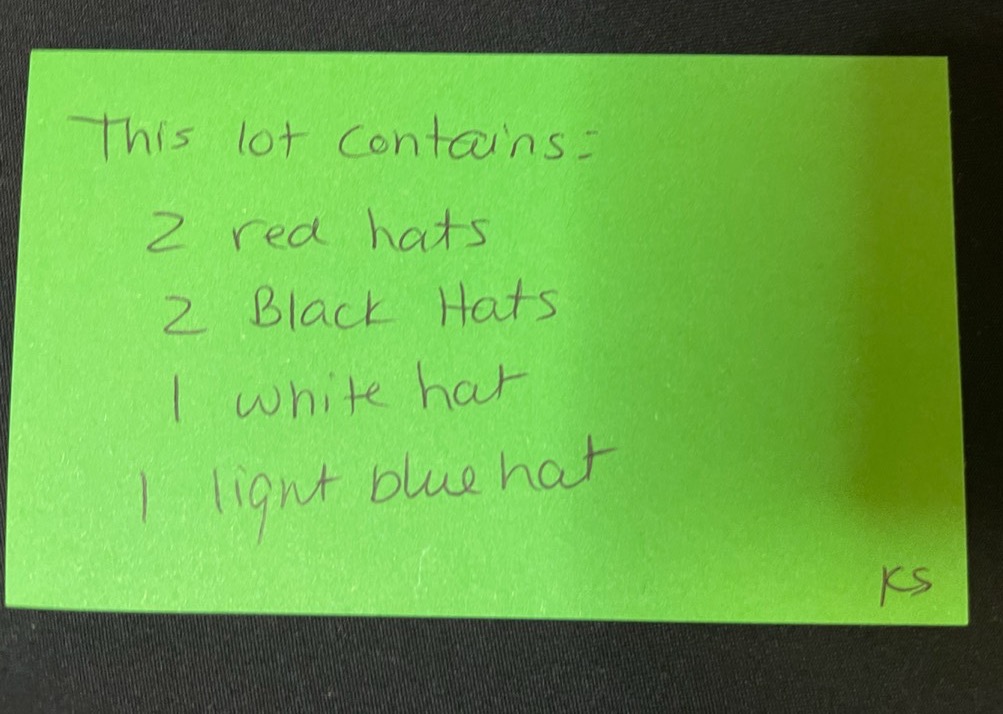 This lot contains:
2 red hats
2 Black Hats
1 white hat
1 light blue hat
KS